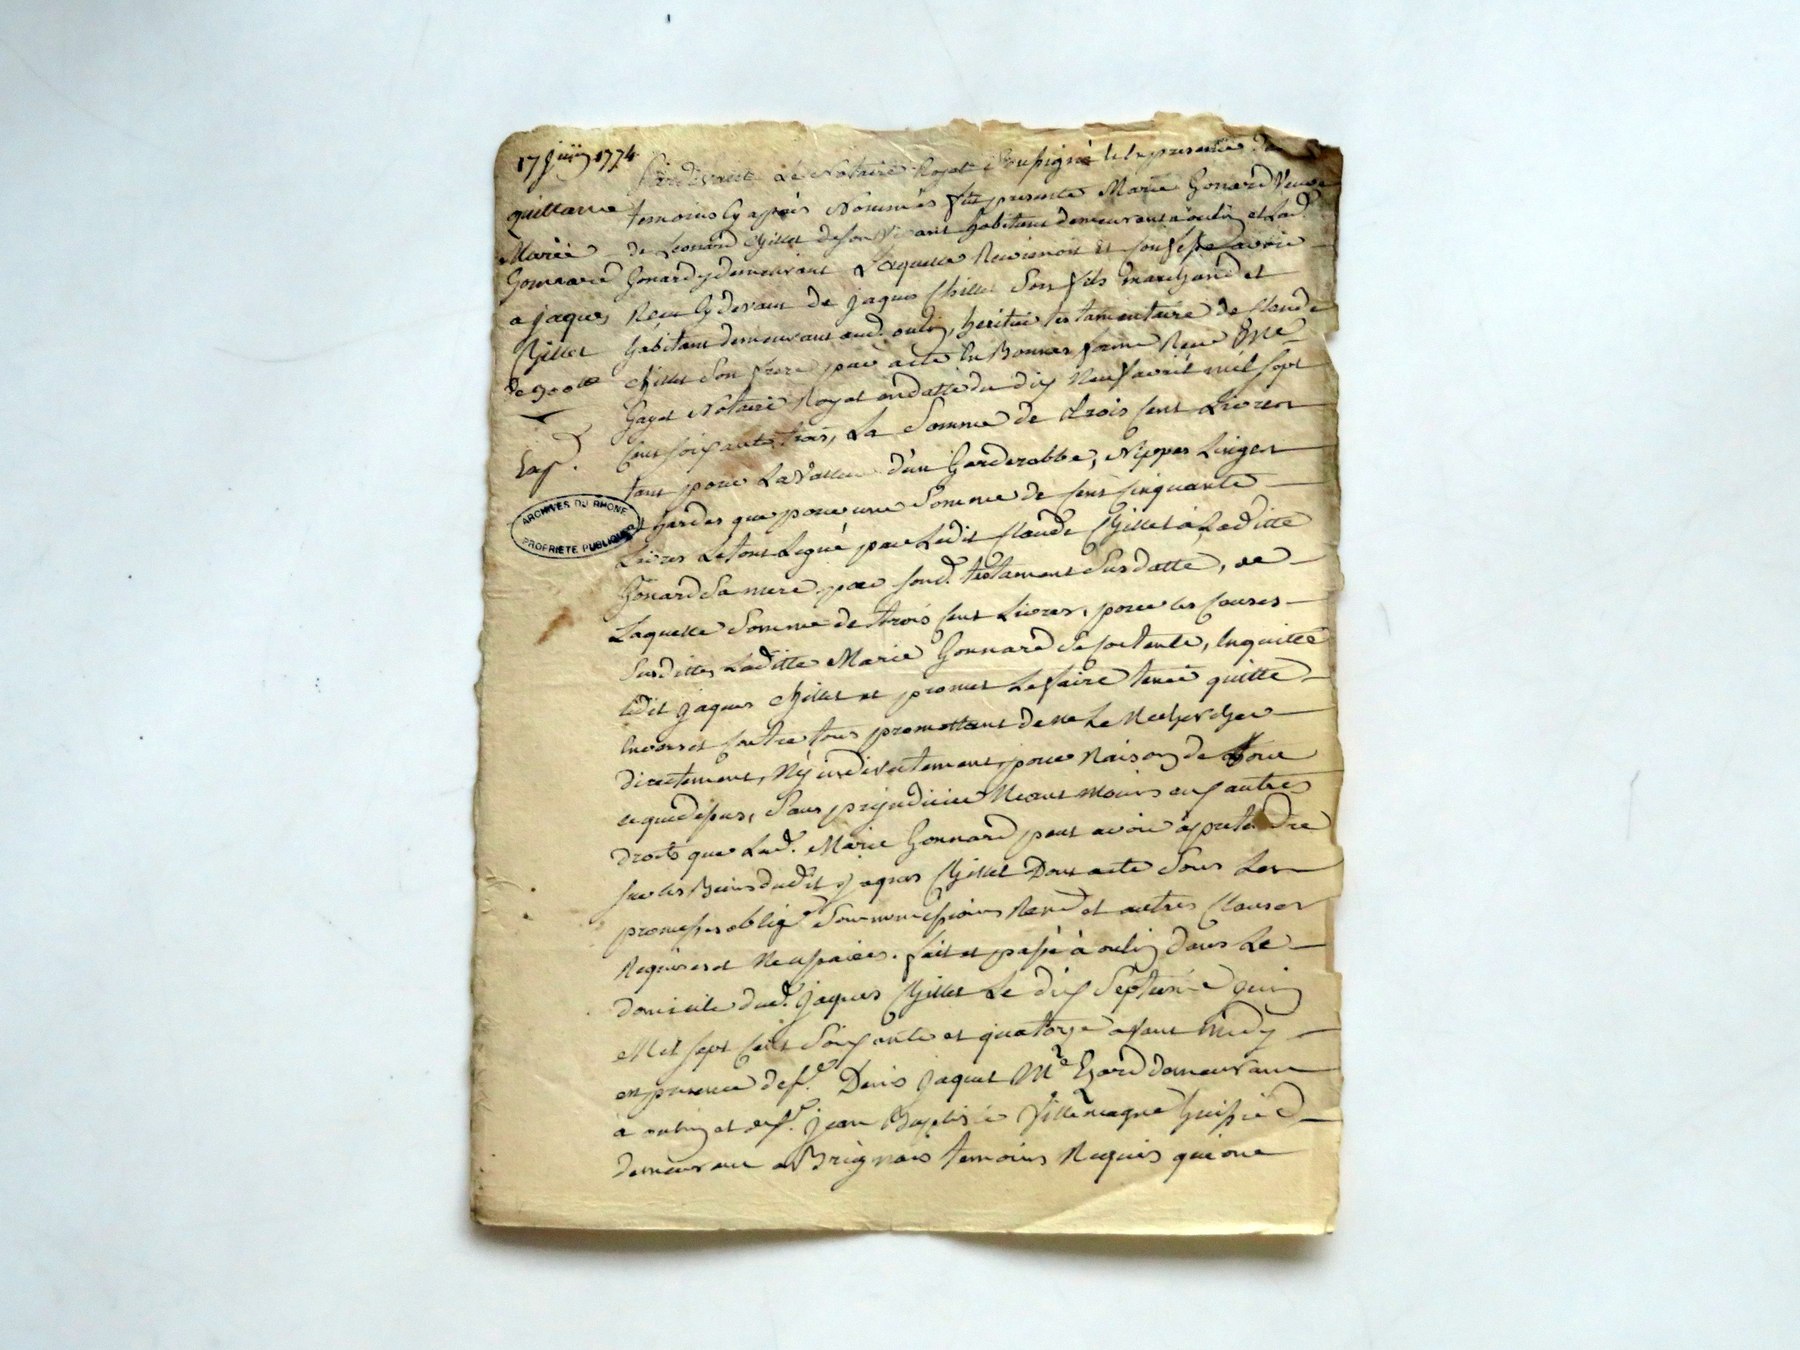 17 juin 1774
quittance
Marie
Gonnard
a jaques
Chillet
de 300tt
Exp.
ARCHIVES DU RHONE
PROPRIETE PUBLIQUE
Pardevant Le Notaire Royal Soussigné et En presence des
temoins Cy après Nommés fut presente Marie Gonard Veuve
de Leonard Chillet de son Vivant habitant demeurant a oulin et Lad.
Gonard y demeurant Laquelle Reconnoit et Confesse avoir
Receu Cy devant de jaques Chillet Son fils marchand et
habitant demeurant aud. oulin, heritier testamentaire de Claude
Chillet Son frere par acte En Bonnes forme Receu Me
Gayet Notaire Royal en datte du dix Neuf avril mil sept
Cent soixante trois, La Somme de trois Cent Livres
tant pour La Valleur d'un Garderobbe, Nippes Linges
et hardes que pour une Somme de Cent Cinquante
Livres Le tout Legué par Ledit Claude Chillet à Laditte
Gonard Sa mere par sond. testament Susdatte, de
Laquelle Somme de trois Cent Livres, pour les Causes
Susdittes Laditte Marie Gonnard Se Contente, En quitte
ledit jaques Chillet et promet Le faire tenir quitte
Envers et Contre tous promettant de ne Le Rechercher
directement, Ny indirectement pour Raison de tout
ce que dessus, Sans prejudicier Neant moins aux autres
droits que Lad. Marie Gonnard peut avoir à pretendre
sur les Biens dudit jaques Chillet Dont acte Sous Les
promesses oblig. Soummissions Rend et autres Clauses
Requises et Necessaires. fait et passé à oulin dans Le
domicile dud. jaques Chillet Le dix Septieme juin
Mil sept Cent Soixante et quatorze avant midy
en presence de s. Denis jaquet Me demeurant
à oulin et de s. jean Baptiste Villemagne huissier
demeurant a Brignais temoins Requis qui ont